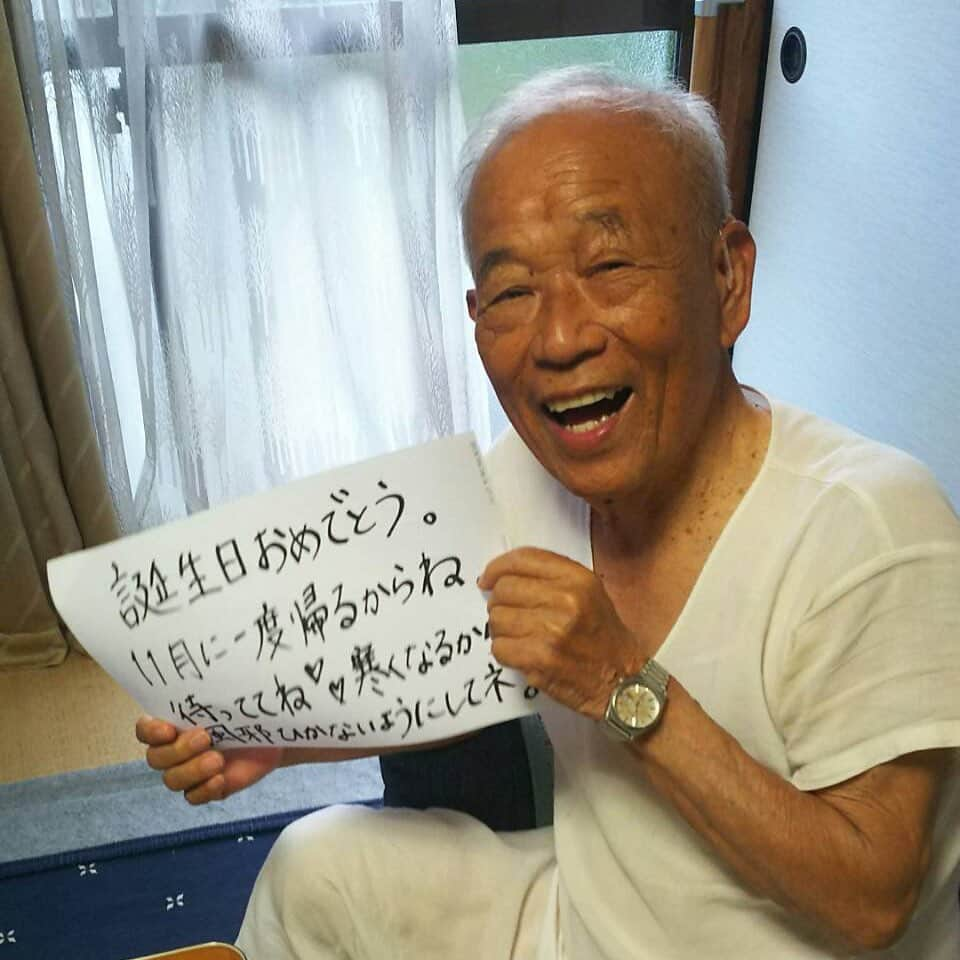 誕生日おめでとう。
11月に一度帰るからね
待っててね♡♡寒くなるから
風邪ひかないようにしてネ。